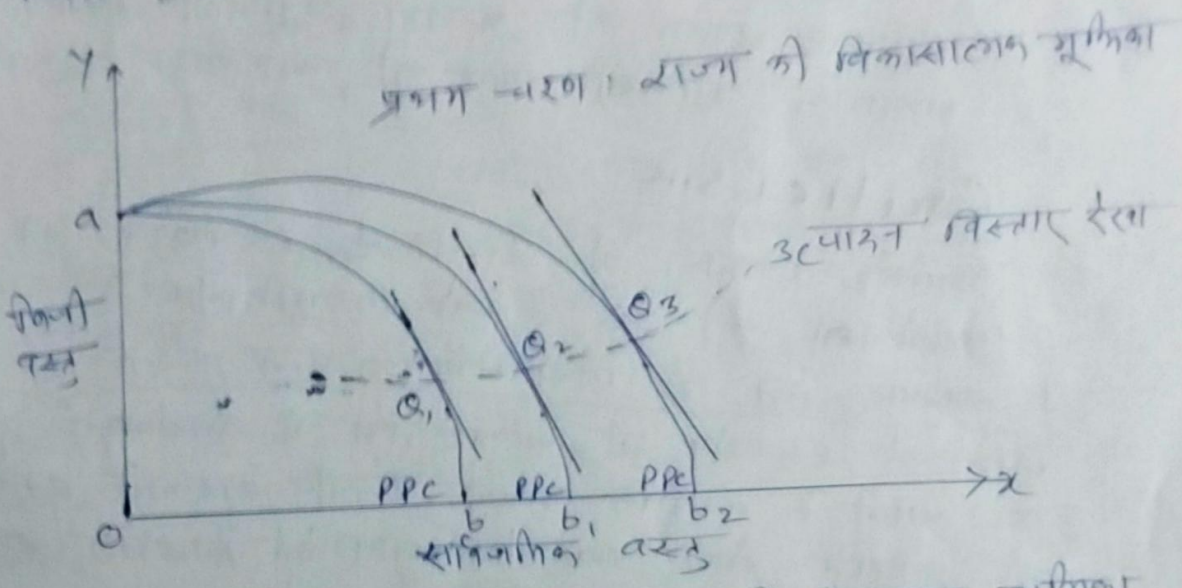 प्रथम चरण : राज्य की विकासात्मक भूमिका
Y
a
उत्पादन विस्तार रेखा
निजी
वस्तु
Q3
Q2
Q1
PPC PPC PPC
x
O b b1 b2
सार्वजनिक वस्तु